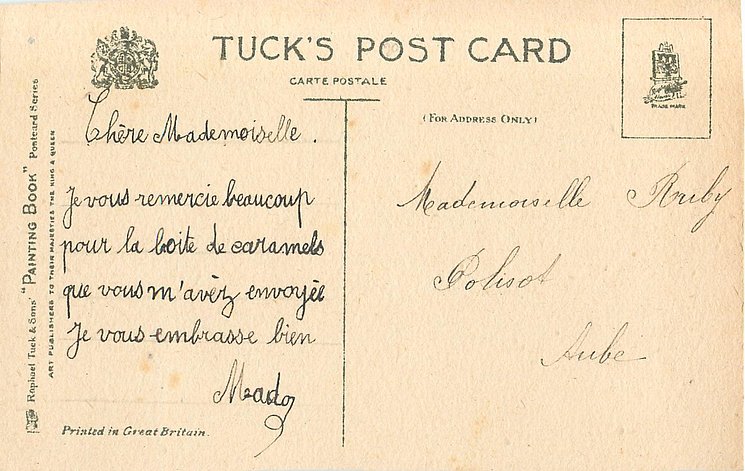 TUCK'S POST CARD
CARTE POSTALE
(FOR ADDRESS ONLY)
TRADE MARK
Raphael Tuck & Sons' "PAINTING BOOK" Postcard Series
ART PUBLISHERS TO THEIR MAJESTIES THE KING & QUEEN
Chère Mademoiselle.
Je vous remercie beaucoup
pour la boite de caramels
que vous m'avèz envoyée
Je vous embrasse bien
Mado
Printed in Great Britain.
Mademoiselle Ruby
Polisot
Aube